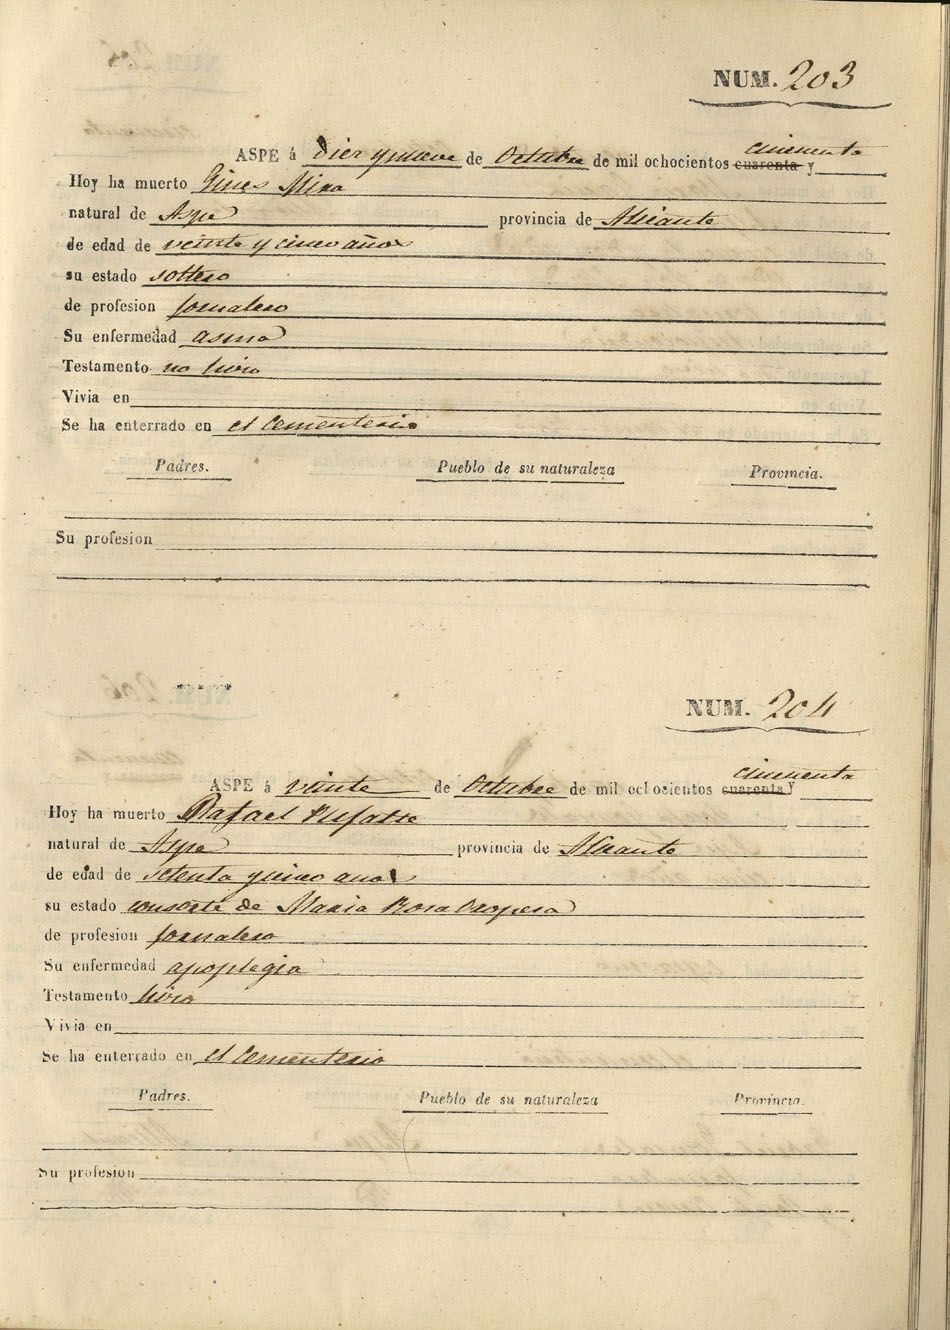 NUM. 203
cincuenta
ASPE á Diez y nueve de Octubre de mil ochocientos cuarenta y
Hoy ha muerto Gines Mira
natural de Aspe provincia de Alicante
de edad de veinte y cinco años
su estado soltero
de profesion jornalero
Su enfermedad asma
Testamento no hizo
Vivia en
Se ha enterrado en el Cementerio
Padres. Pueblo de su naturaleza Provincia.
Su profesion
NUM. 204
cincuenta
ASPE á veinte de Octubre de mil ochocientos cuarenta y
Hoy ha muerto Rafael Pujalte
natural de Aspe provincia de Alicante
de edad de setenta y cinco años
su estado consorte de Maria Rosa Oropesa
de profesion jornalero
Su enfermedad apoplegia
Testamento hizo
Vivia en
Se ha enterrado en el Cementerio
Padres. Pueblo de su naturaleza Provincia.
Su profesion